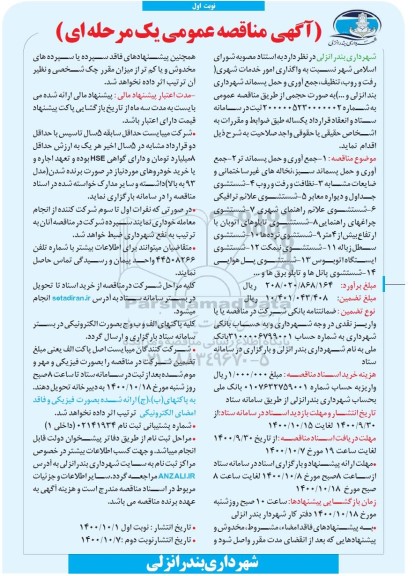 نوبت اول
(آگهی مناقصه عمومی یک مرحله ای)
شهرداری بندر انزلی در نظر دارد به استناد مصوبه شورای
اسلامی شهر نسبت به واگذاری امور خدمات شهری(
رفت و روب، تنظیف، جمع آوری و حمل پسماند شهرداری
بندر انزلی و ...) به صورت حجمی از طریق مناقصه عمومی
به شماره ثبت در سامانه
ستاد و انعقاد قرارداد یکساله طبق ضوابط و مقررات به
اشخاص حقیقی یا حقوقی واجد صلاحیت به شرح ذیل
اقدام نماید.
موضوع مناقصه: ۱-جمع آوری و حمل پسماند تر ۲-جمع
آوری و حمل پسماند سبز، نخاله های غیر ساختمانی و
ضایعات مشابه ۳-نظافت و رفت و روب ۴-شستشوی
جداول و دیواره معابر ۵-شستشوی علائم ترافیکی
۶-شستشوی علائم راهنمای شهری ۷-شستشوی
چراغهای راهنمایی ۸-شستشوی تابلوهای اتوبان با
ارتفاع بیش از ۴ متر ۹-شستشوی نرده ها ۱۰-شستشوی
سطل زباله ۱۱-شستشوی نیمکت ۱۲-شستشوی
ایستگاه اتوبوس ۱۳-شستشوی پل هوایی
۱۴-شستشوی پانل ها و تابلو برق ها و ...
مبلغ برآورد: ۲۰۸/۰۲۰/۸۶۸/۱۶۴ ریال
مبلغ تضمین: ۱۰/۴۰۱/۰۴۳/۴۰۸ ریال
نوع تضمین: ضمانتنامه بانکی شرکت در مناقصه یا
واریز نقدی در وجه شهرداری و به حساب بانکی
ملی به شماره حساب بانک
ملی به نام شهرداری بندر انزلی و بارگذاری در سامانه
ستاد
هزینه خرید اسناد مناقصه: مبلغ ۱/۰۰۰/۰۰۰ ریال
واریز به حساب شماره ۰۱۰۷۶۳۲۷۵۹۰۰۱ بانک ملی
بحساب شهرداری بندر انزلی از طریق سامانه ستاد
تاریخ انتشار و مهلت بازدید اسناد در سامانه ستاد: از
۱۴۰۰/۹/۳۰ لغایت ۱۴۰۰/۱۰/۱۵
مهلت دریافت اسناد مناقصه: از تاریخ ۱۴۰۰/۹/۳۰
لغایت ساعت ۱۹ مورخ ۱۴۰۰/۱۰/۷
•مهلت ارائه پیشنهاد و بارگزاری اسناد در سامانه ستاد
از ساعت ۸ صبح مورخ ۱۴۰۰/۱۰/۸ لغایت ساعت ۸
صبح مورخ ۱۴۰۰/۱۰/۱۸
زمان بازگشایی پیشنهادها: ساعت ۱۰ صبح روز شنبه
مورخ ۱۴۰۰/۱۰/۱۸ دفتر کار شهردار بندر انزلی
•به پیشنهادهای فاقد امضاء، مشروط، مخدوش و
پیشنهادهایی که بعد از انقضای مدت مقرر واصل شود و
همچنین پیشنهادهای فاقد سپرده یا سپرده های
مخدوش و یا کم تر از میزان مقرر چک شخصی و نظیر
آن، ترتیب اثر داده نخواهد شد.
-مدت اعتبار پیشنهاد مالی: پیشنهاد مالی ارائه شده می
بایست به مدت سه ماه از تاریخ بازگشایی پاکت پیشنهاد
قیمت دارای اعتبار باشد.
•شرکت میبایست حداقل سابقه ۵ سال تاسیس با حداقل
دو قرارداد مشابه در ۵ سال اخیر هر یک به ارزش حداقل
میلیارد تومان و دارای گواهی HSE بوده و تعهد اجاره و
یا خرید خودروهای موردنیاز در صورت برنده شدن (مدل
۹۳ به بالا) داشته و سایر مدارک خواسته شده در اسناد
مناقصه را در سامانه بارگزاری نماید.
•در صورتی که نفرات اول تا سوم شرکت کننده از انجام
معامله خودداری نمایند سپرده شرکت در مناقصه آنان به
ترتیب به نفع شهرداری ضبط خواهد شد.
•متقاضیان میتوانند برای اطلاعات بیشتر با شماره تلفن
۴۴۵۰۸۲۶۶ واحد پیمان و رسیدگی تماس حاصل
نمایند.
کلیه مراحل شرکت در مناقصه از خرید اسناد تا تحویل
در بستر سامانه ستاد به آدرس setadiran.ir انجام
خواهد شد.
کلیه پاکتهای الف و ب و ج بصورت الکترونیکی در بستر
سامانه ستاد بارگزاری و ارسال گردد.
•شرکت کنندگان میبایست اصل پاکت الف یعنی مبلغ
تضمین شرکت در مناقصه را بصورت فیزیکی و مهر و
موم شده بعد از ثبت در سامانه ستاد تا ساعت ۸ صبح
روز شنبه مورخ ۱۴۰۰/۱۰/۱۸ به دبیرخانه تحویل دهند.
به پاکتهای (ب)،(ج) ارائه شده بصورت فیزیکی و فاقد
امضای الکترونیکی ترتیب اثر داده نخواهد شد.
•شماره پشتیبانی ثبت نام ۰۲۱۴۱۹۳۴ (داخلی ۱)
•مراحل ثبت نام از طریق دفاتر پیشخوان دولت قابل
انجام میباشد، و جهت کسب اطلاعات بیشتر در خصوص
مراکز ثبت نام به سایت شهرداری بندر انزلی به آدرس
ANZALI.IR مراجعه گردد، سایر اطلاعات و جزئیات
مربوط در اسناد مناقصه مندرج است و هزینه آگهی به
عهده برنده مناقصه می باشد.
•تاریخ انتشار: نوبت اول ۱۴۰۰/۱۰/۱
•تاریخ انتشار نوبت دوم: ۱۴۰۰/۱۰/۷
شهرداری بندر انزلی